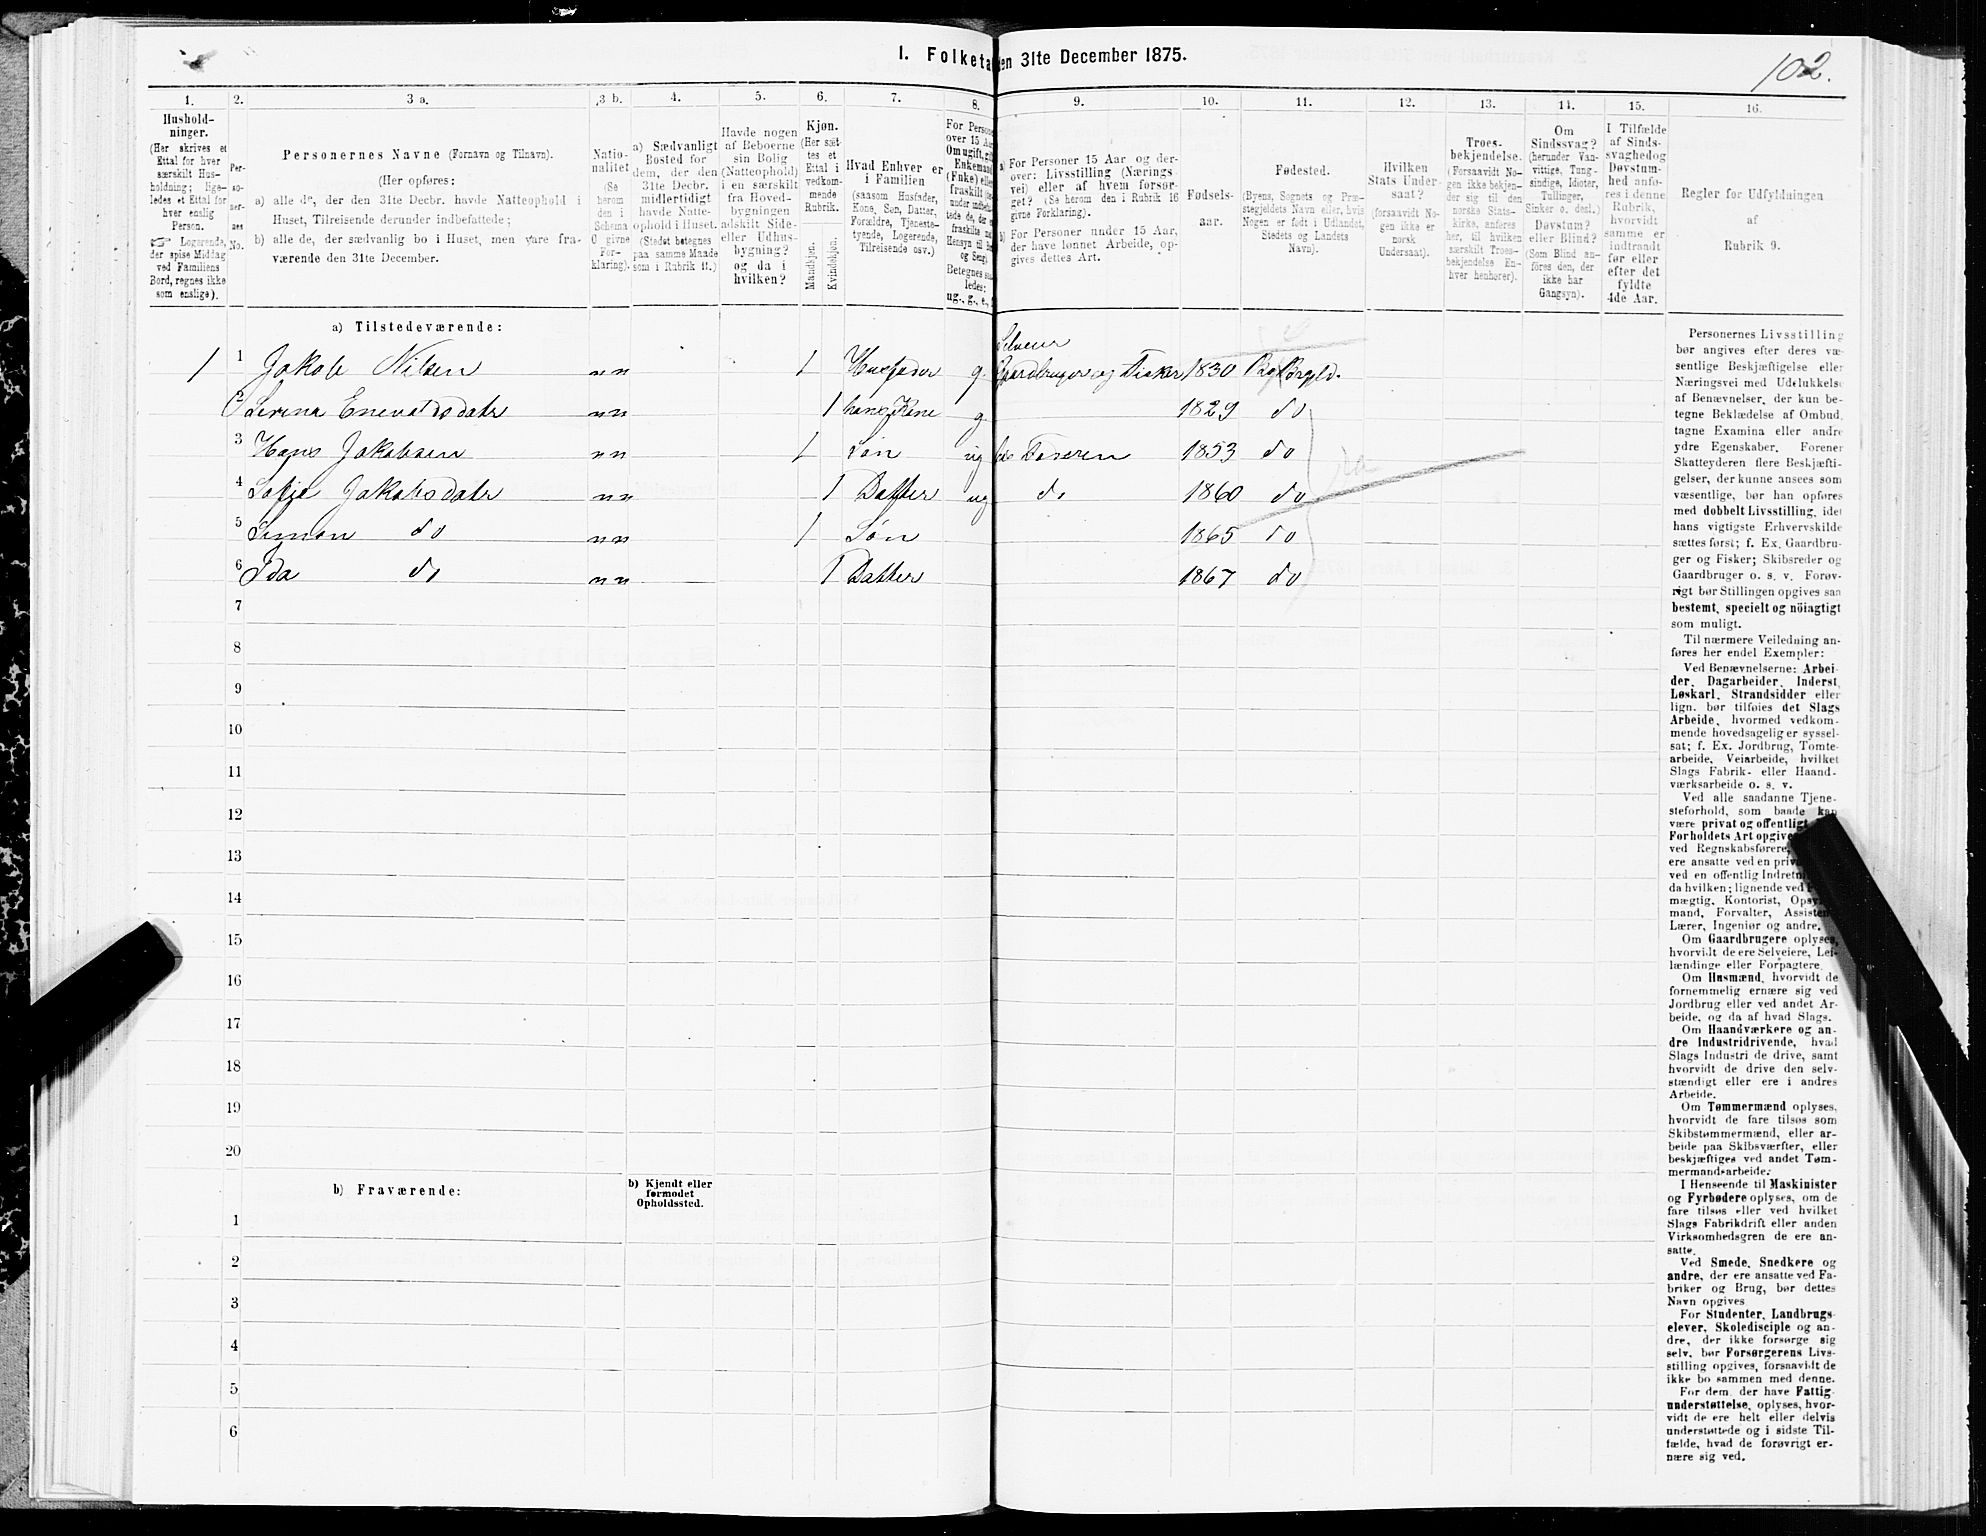 I. Folketæ
en 31te December 1875.
102.
1.
2.
3 a.
3 b.
4.
5.
6.
7.
8.
9.
10.
11.
12.
13.
14.
15.
16.
Hushold-
ninger.
(Her skrives et
Ettal for hver
særskilt Hus-
holdning; lige-
ledes et Ettal for
hver enslig
Person.
☞ Logerende,
der spise Middag
ved Familiens
Bord, regnes ikke
som enslige).
Per-
so-
ner-
nes
No.
Personernes Navne (Fornavn og Tilnavn).
(Her opføres:
a) alle de, der den 31te Decbr. havde Natteophold i
Huset, Tilreisende derunder indbefattede;
b) alle de, der sædvanlig bo i Huset, men vare fra-
værende den 31te December.
Natio-
nalitet
(Se
herom
den i
Schema
0 givne
For-
klaring).
a) Sædvanligt
Bosted for
dem, der den
31te Decbr.
midlertidigt
havde Natte-
ophold i Huset.
(Stedet betegnes
paa samme Maade
som i Rubrik 11.)
Havde nogen
af Beboerne
sin Bolig
(Natteophold)
i en særskilt
fra Hoved-
bygningen
adskilt Side-
eller Udhus-
bygning?
og da i
hvilken?
Kjøn.
(Her sæt-
tes et
Ettal i
vedkom-
mende
Rubrik.
Mandkjøn.
Kvindekjøn.
Hvad Enhver er
i Familien
(saasom Husfader,
Kone, Søn, Datter,
Forældre, Tjeneste-
tyende, Logerende,
Tilreisende osv.)
For Person
over 15 Aar
Om ugift, gift
Enkemand
(Enke) elle
fraskilt
a) For Personer 15 Aar og der-
over: Livsstilling (Nærings-
vei) eller af hvem forsør-
get? (Se herom den i Rubrik 16
givne Forklaring).
b) For Personer under 15 Aar,
der have lønnet Arbeide, op-
gives dettes Art.
Fødsels-
aar.
Fødested.
(Byens, Sognets og Præ-
stegjeldets Navn eller, hvis
Nogen er født i Udlandet,
Stedets og Landets
Navn).
Hvilken
Stats Under-
saat?
(forsaavidt No-
gen ikke er
norsk
Undersaat).
Troes-
bekjendelse.
(Forsaavidt No-
gen ikke bekjen-
der sig til den
norske Stats-
kirke, anføres
her, til hvilken
særskilt Troes-
bekjendelse En-
hver henhører).
Om
Sindssvag?
(herunder Van-
vittige, Tung-
sindige, Idioter,
Tullinger,
Sinker o. desl.)
Døvstum?
eller Blind?
(Som Blind an-
føres den, der
ikke har
Gangsyn).
I Tilfælde
af Sinds-
svaghed og
Døvstum-
hed anfø-
res i denne
Rubrik,
hvorvidt
samme er
indtraadt
før eller
efter det
fyldte
4de Aar.
Regler for Udfyldningen
af
Rubrik 9.
a) Tilstedeværende:
Selveier
1 1 Jakob Nilsen nn 1 Husfader g. Gaardbruger og Fisker 1830 Bø Prgjld.
2 Serina Enevoldsdatr nn 1 hans Kone g 1829 do
3 Hans Jakobsen nn 1 Søn ug Faderen 1853 do
4 Sofie Jakobsdatr nn 1 Datter ug do 1860 do
5 Simon do nn 1 Søn 1865 do
6 Ida do nn 1 Datter 1867 do
7
8
9
10
11
12
13
14
15
16
17
18
19
20
b) Fraværende:
b) Kjendt eller
formodet
Opholdssted.
1
2
3
4
5
6
Personernes Livsstilling
bør angives efter deres væ-
sentlige Beskjæftigelse eller
Næringsvei med Udelukkelse
af Benævnelser, der kun be-
tegne Beklædelse af Ombud,
tagne Examina eller andre
ydre Egenskaber. Forener
Skatteyderen flere Beskjæfti-
gelser, der kunne ansees som
væsentlige, bør han opføres
med dobbelt Livsstilling, idet
hans vigtigste Erhvervskilde
sættes først; f. Ex. Gaardbru-
ger og Fisker; Skibsreder og
Gaardbruger o. s. v. Forøv-
rigt bør Stillingen opgives saa
bestemt, specielt og nöiagtigt
som muligt.
Til nærmere Veiledning an-
føres her endel Exempler:
Ved Benævnelserne: Arbei-
der, Dagarbeider, Inderst,
Løskarl, Strandsidder eller
lign. bør tilføies det Slags
Arbeide, hvormed vedkom-
mende hovedsagelig er syssel-
sat; f. Ex. Jordbrug, Tomte-
arbeide, Veiarbeide, hvilket
Slags Fabrik- eller Haand-
værksarbeide o. s. v.
Ved alle saadanne Tjene-
steforhold, som baade kan
være privat og offentligt
Forholdets Art opgive
ved Regnskabsførere,
ere ansatte ved en priv
ved en offentlig Indretn
da hvilken; lignende ved
mægtig, Kontorist, Opsy
mand, Forvalter, Assisten
Lærer, Ingeniør og andre.
Om Gaardbrugere oplyses,
hvorvidt de ere Selveiere, Lei-
lændinge eller Forpagtere.
Om Husmænd, hvorvidt de
fornemmelig ernære sig ved
Jordbrug eller ved andet Ar-
beide, og da af hvad Slags.
Om Haandværkere og an-
dre Industridrivende, hvad
Slags Industri de drive, samt
hvorvidt de drive den selv-
stændigt eller ere i andres
Arbeide.
Om Tømmermænd oplyses,
hvorvidt de fare tilsøs som
Skibstømmermænd, eller ar-
beide paa Skibsværfter, eller
beskjæftiges ved andet Tøm-
mermandsarbeide.
I Henseende til Maskinister
og Fyrbødere oplyses, om de
fare tilsøs eller ved hvilket
Slags Fabrikdrift eller anden
Virksomhedsgren de ere an-
satte.
Ved Smede, Snedkere og
andre, der ere ansatte ved Fa-
briker og Brug, bør dettes
Navn opgives
For Studenter, Landbrugs-
elever, Skoledisciple og an-
dre, der ikke forsørge sig
selv, bør Forsørgerens Livs-
stilling opgives, forsaavidt de
ikke bo sammen med denne.
For dem, der have Fattig-
understøttelse, oplyses, hvor-
vidt de ere helt eller delvis
understøttede og i sidste Til-
fælde, hvad de forøvrigt er-
nære sig ved.